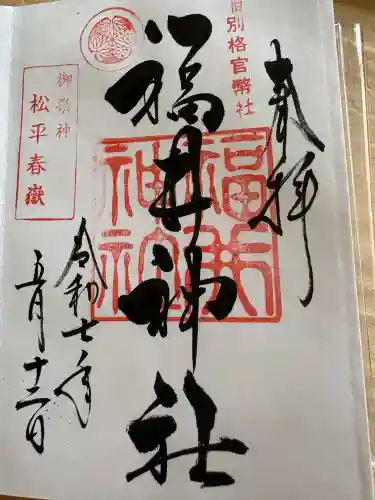 旧別格官幣社
奉拝
福井神社
福井
神社
御祭神
松平春嶽
令和七年
五月十二日